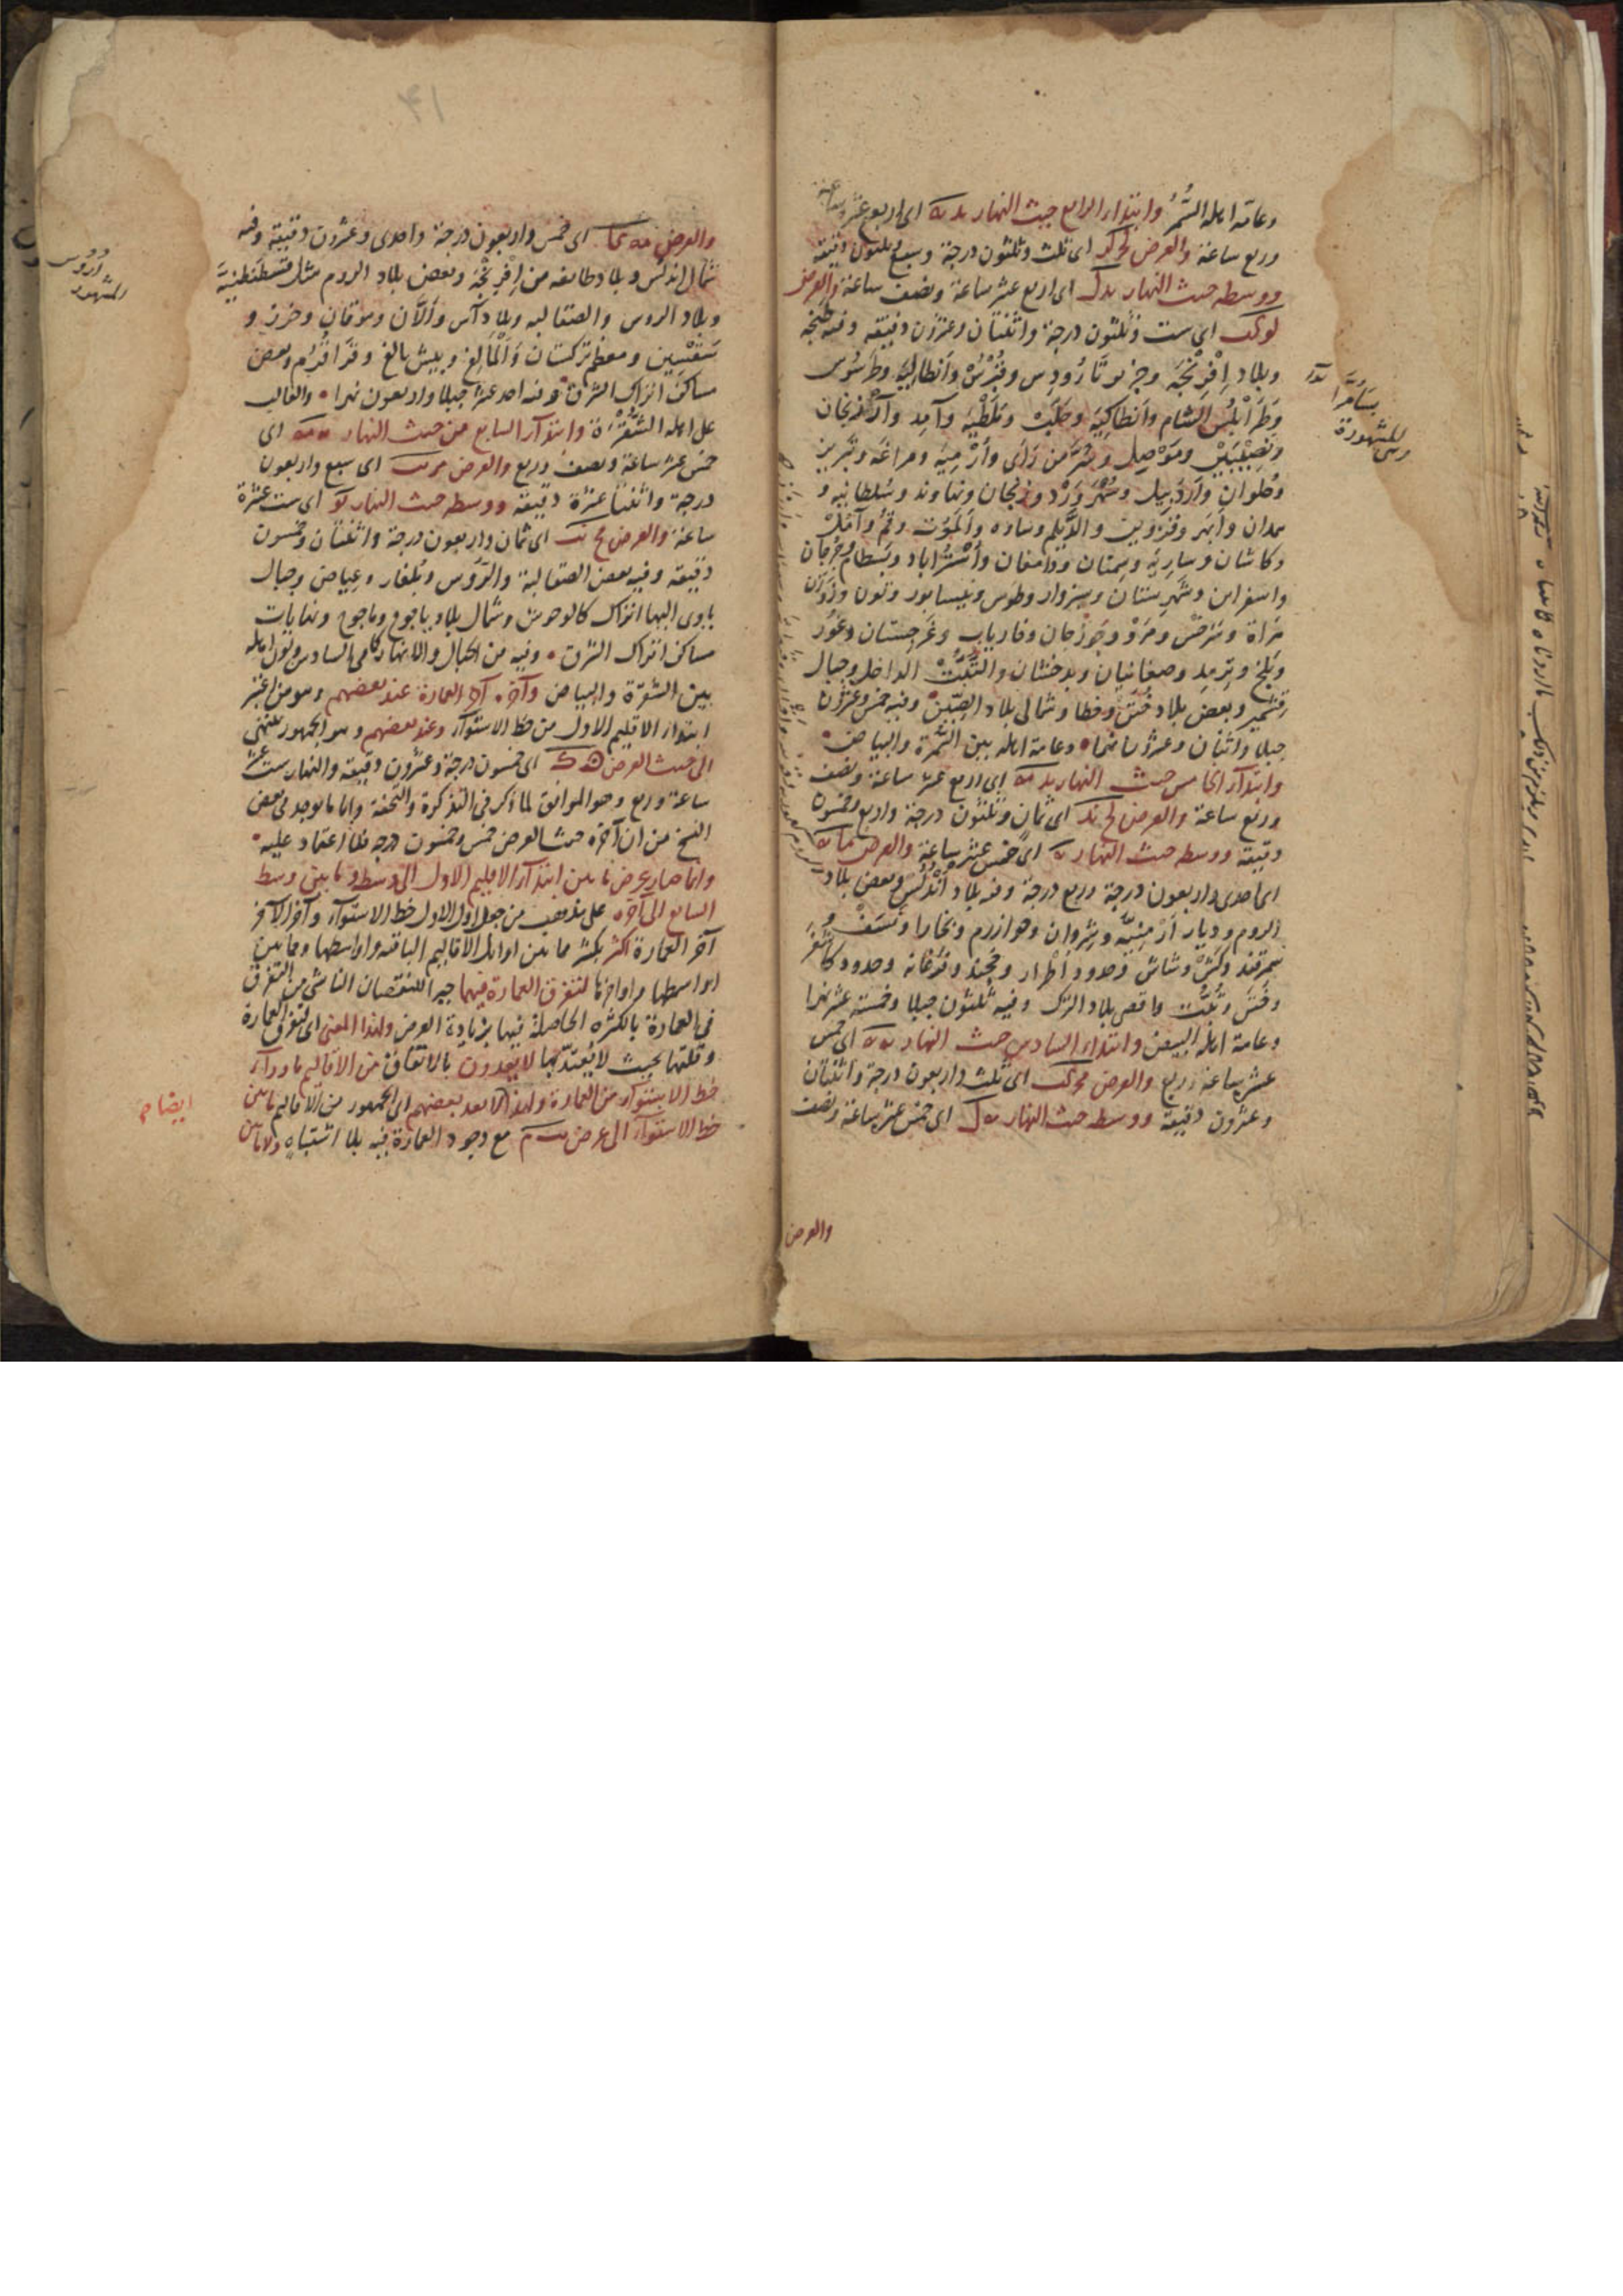 وعامة اهله السُّمْرُ وابتداء الرابع حيث النهار يد يه اى اربع عشرة ساعة
وربع ساعة والعرض لج لز اى ثلث وثلثون درجة وسبع وثلثون دقيقة
ووسطه حيث النهار يد ل اى اربع عشر ساعة ونصف ساعة والعرض
لو كب اى ست وثلثون درجة واثنتان وعشرون دقيقة وفيه طنجه
وبلاد اِفْرِنْجَه وجزيرتا رُودِس وقُبْرُس وأنطاليَه وطَرَسُوس
وطَرَابُلُس الشام وأنطاكِيَه وحَلَبْ ومَلَطْيَه وآمِد وآرْزنجان
ونَصِيْبَيْنِ ومَوْصِل وسُرَّ مَن رَأى وأرْمِيَه ومراغَه وتَبريز
وحُلوان واَردَبيل وسُهْرَوَرْد وزنجان ونهاوند وسُلطانيه و
همدان واَبْهَر وقزوين والدَّيْلم وساوه واَلَمَوْت وقُم وآمُل
وكاشان وساريَه وسِمنان ودامغان واَسْتَراباد وبَسطام وجُرجان
واسفراين وشَهرِستان وسبزوار وطوس ونيسابور وتون وزَوزَن
هَراة وسَرَخْس ومَرْوْ وجَوزجان وفارياب وغَرجِستان وغُور
وبَلخ وتِرمِد وصغانيان وبدخشان والتُّبَّتْ الداخل وجبال
قِشمير وبعض بلاد خُتَن وخطا وشمالى بلاد الصِّيْن وفيه خمس وعشرون
جبلا واثنان وعشرون نهرا وعامة اهله بين السُّمْرة والبياض
وابتداء الخامس حيث النهار يد مه اى اربع عشر ساعة ونصف
وربع ساعة والعرض لح ند اى ثمانٍ وثلثون درجة واربع وخمسون
دقيقة ووسطه حيث النهار يه اى خمس عشر ساعة والعرض ما يه
اى احدى واربعون درجة وربع درجة وفيه بلاد اَنْدُلُس وبعض بلاد
الروم وديار اَرْمِنِيَّه وشِروان وخوارزم وبخارا ونَسَف و
سمرقند وكَشّ وشاش وحدود اُطرار وخُجَند وفَرغانه وحدود كاشغر
وخُتَن وتُبَّت واقصى بلاد الترك وفيه ثلثون جبلا وخمسة عشر نهرا
وعامة اهله البيض وابتداء السادس حيث النهار يه يه اى خمس
عشر ساعة وربع والعرض مج كب اى ثلث واربعون درجة واثنتان
وعشرون دقيقة ووسطه حيث النهار يه ل اى خمس عشر ساعة ونصف
والعرض
بسَامَرَّا
المشهورة
والعرض مه كا اى خمس واربعون درجة واحدى وعشرون دقيقة وفيه
شمال اندلس وبلاد طايفه من اِفْرنْجَه وبعض بلاد الروم مثل قسطَنطِنيَه
وبلاد الروس والصقالبه وبلاد آس واَلاَّن وموقان وخزر و
سَقْسِين ومعظم تركستان واَلْمَالغ وبيش بالغ وقَراقُرُم وبعض
مساكن اتراك الشرق وفيه احد عشر جبلا واربعون نهرا والغالب
على اهله الشُّقْرَة وابتداء السابع من حيث النهار يه مه اى
خمس عشر ساعة ونصف وربع والعرض مز يب اى سبع واربعون
درجة واثنتا عشرة دقيقة ووسطه حيث النهار يو اى ست عشرة
ساعة والعرض مح نب اى ثمان واربعون درجة واثنتان وخمسون
دقيقة وفيه بعض الصقالبة والرُّوس وبُلغار وغياض وجبال
ياوى اليها اتراك كالوحوش وشمال بلاد ياجوج وماجوج ونهايات
مساكن اتراك الشرق وفيه من الجبال والانهار كما فى السادس ولون اهله
بين الشقرة والبياض وآخره آخر العمارة عند بعضهم وهو من اعتبر
ابتداء الاقليم الاول من خط الاستواء وعند بعضهم وهو الجمهور ينتهى
الى حيث العرض ن ك اى خمسون درجة وعشرون دقيقة والنهار ست عشرة
ساعة وربع وهو الموافق لما ذكر فى التذكرة والتحفة واما ما يوجد فى بعض
النسخ من ان آخره حيث العرض خمس وخمسون درجه فلا اعتماد عليه
وانما صار عرض ما بين ابتداء الاقليم الاول الى وسطه وما بين وسط
السابع الى آخره على مذهب من جعل اول الاول خط الاستواء وآخر الآخر
آخر العمارة اكثر بكثير مما بين اوايل الاقاليم الباقيه واواسطها ومما بين
اواسطها واواخرها لتفرق العمارة فيهما جبرا للنقصان الناشى من التفرق
فى العمارة بالكثرة الحاصلة فيها بزيادة العرض ولهذا المعنى اى لتفرق العمارة
وقلتها بحيث لا يُعتدّ بها لا يعدون بالاتفاق من الاقاليم ما وراء
خط الاستواء من العمارة ولهذا لا يعد بعضهم اى الجمهور من الاقاليم ما بين
خط الاستواء الى عرض يب م مع وجود العمارة فيه بلا اشتباه ولا ما بين
اُرُوس
المشهور
ايضاح